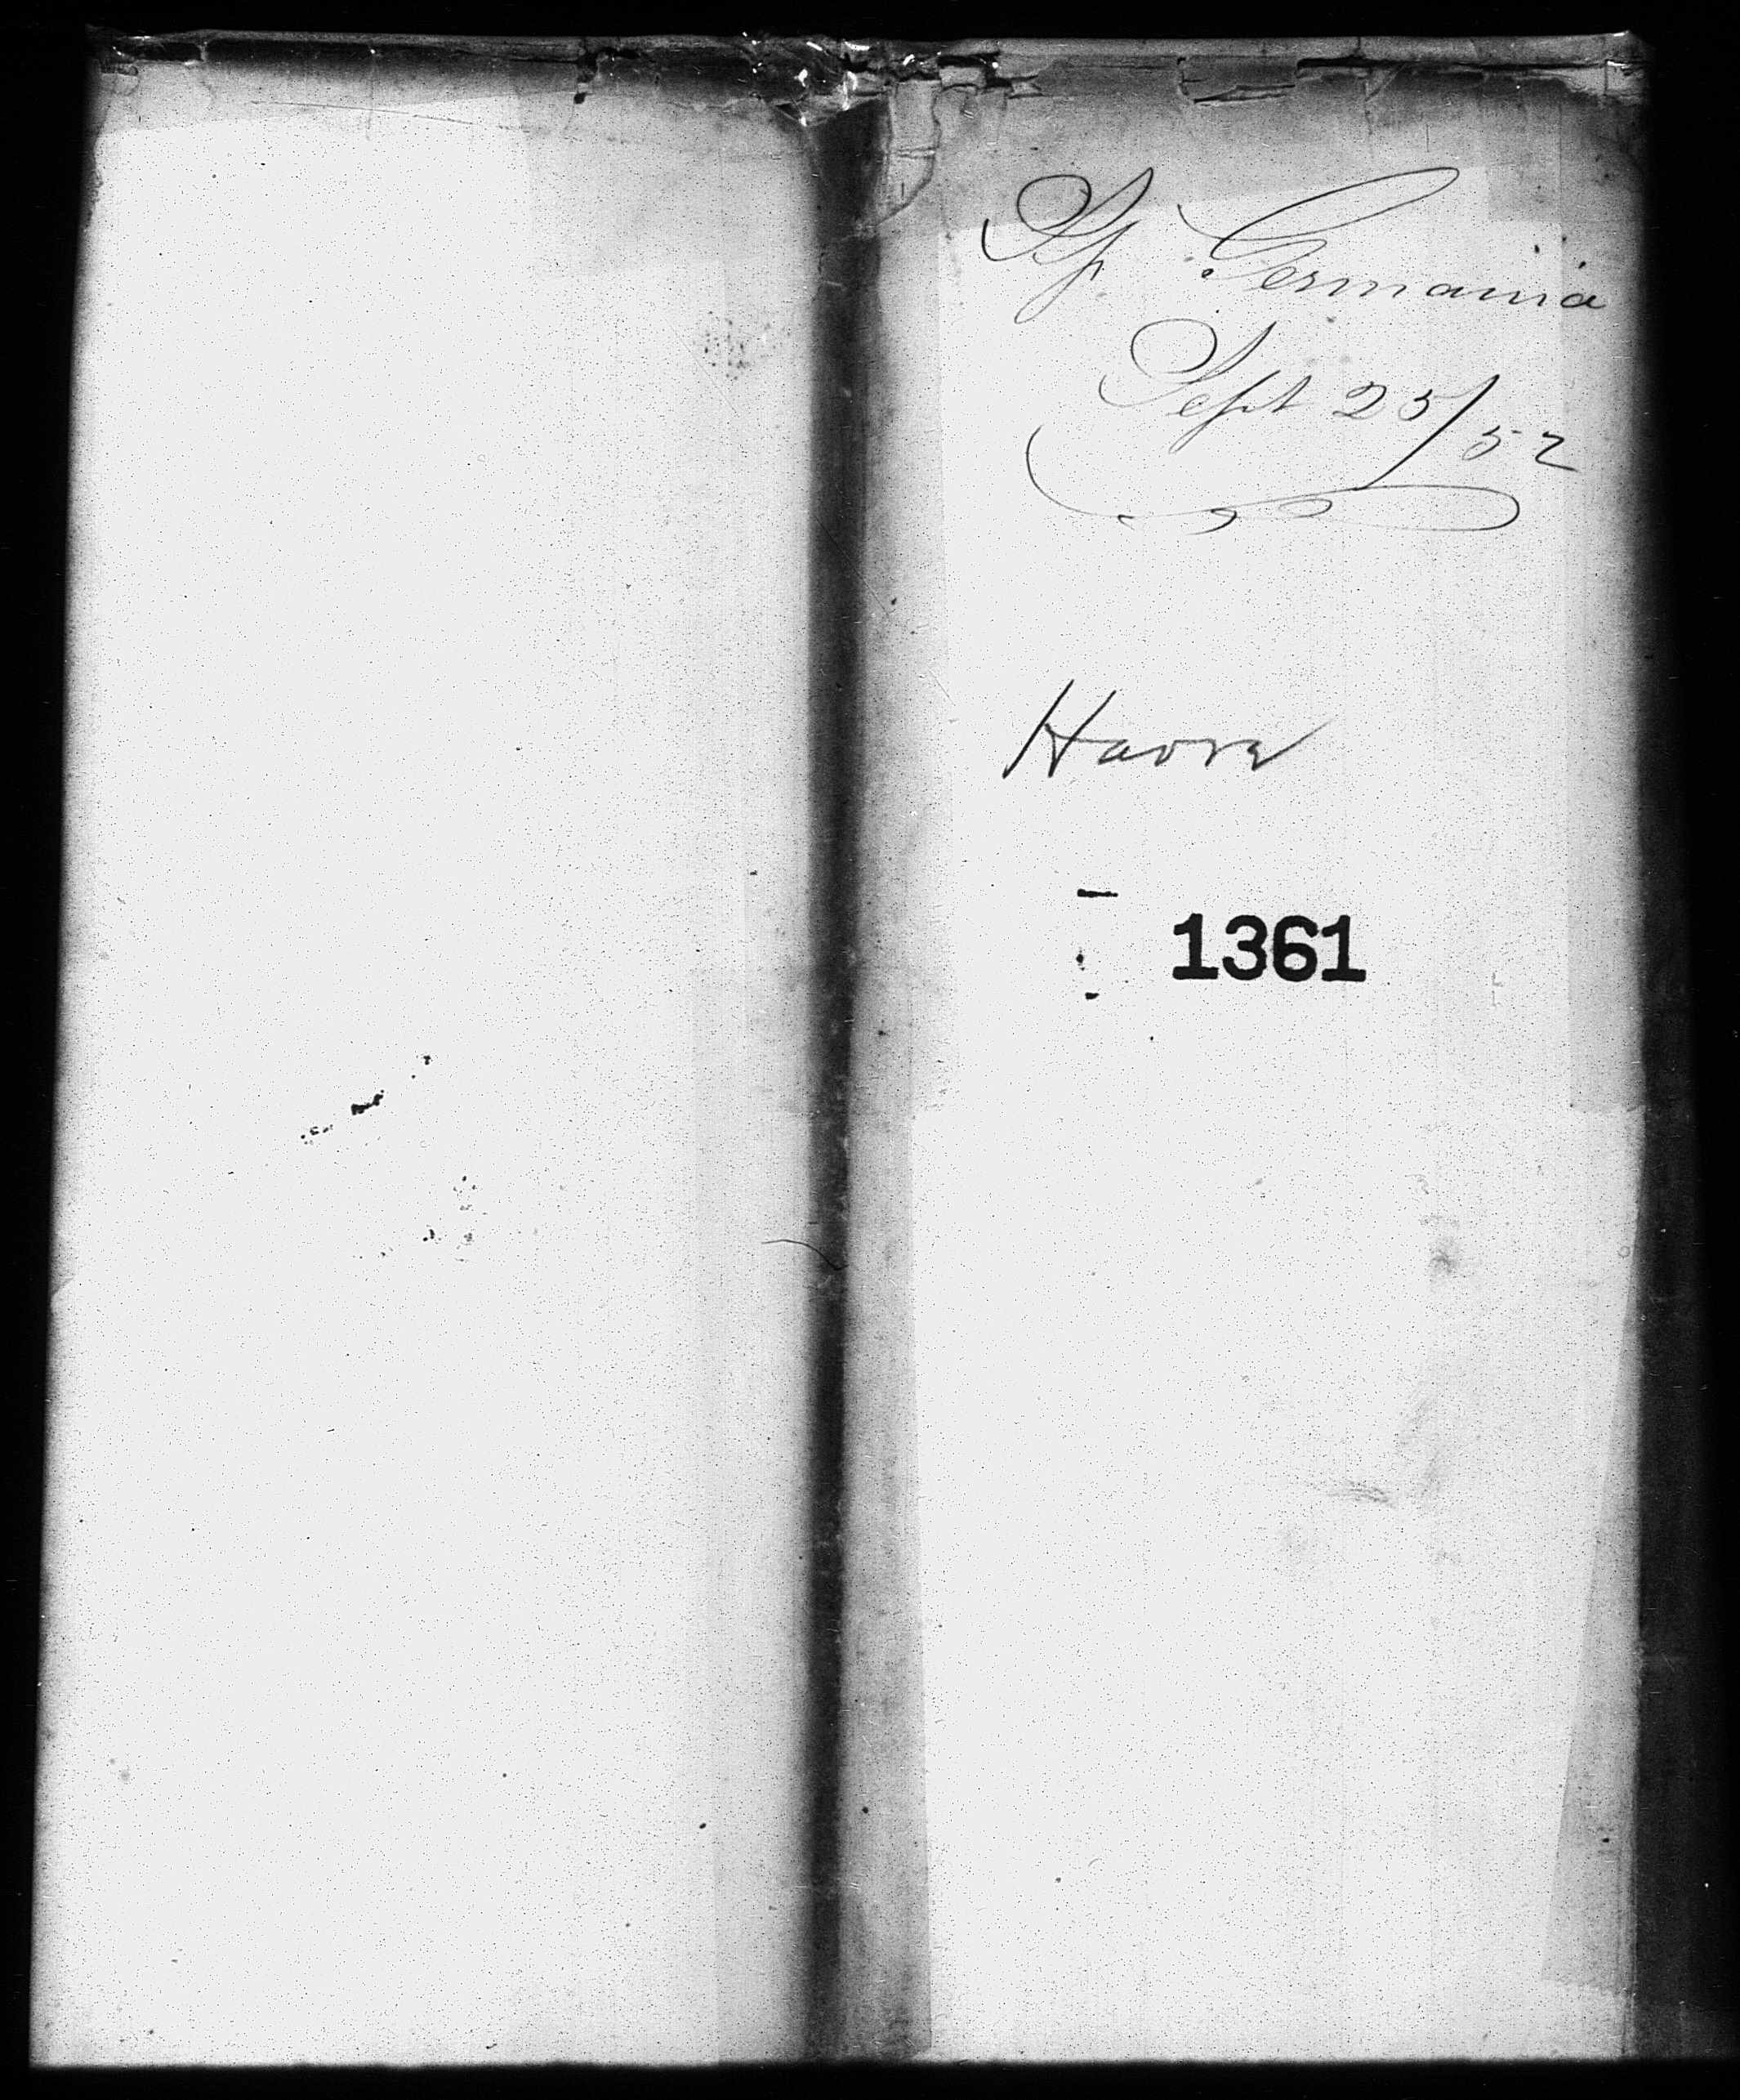 Sp Germania
Sept 25/52
Havre
1361